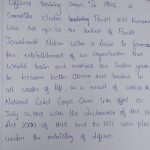 Officers Training Corps. In 1946 a
Committee Under Pandit H.N. Kunzru
was set up at the behest of Pandit
Jawaharlal Nehru with a base to
the establishment of an organisation that
would train and motivate the Indian youth
to become better citizens and
in all walks of life, a result of which
National Cadet Corps Came into effect on
July with the declaration of the
Act XXXI of 1948 and the NCC was placed
under the ministry of defence.